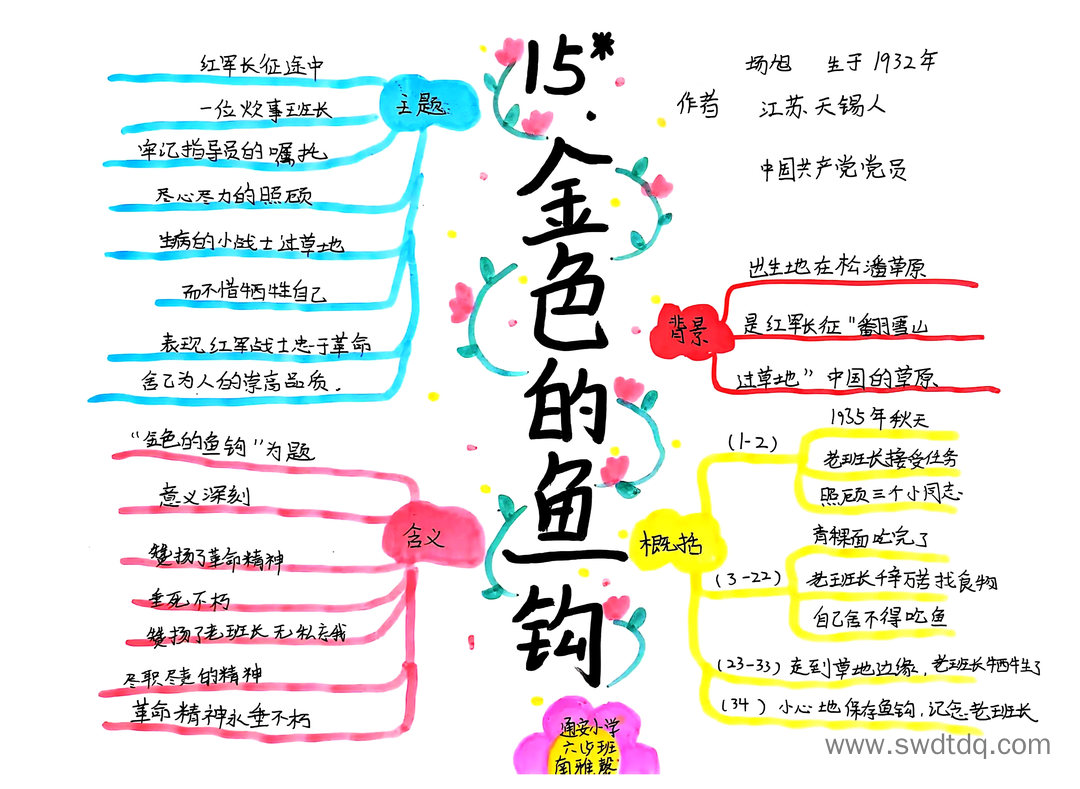 15.*金色的鱼钩
作者
杨旭 生于1932年
江苏天锡人
中国共产党党员
主题
红军长征途中
一位炊事班长
牢记指导员的嘱托
尽心尽力的照顾
生病的小战士过草地
而不惜牺牲自己
表现红军战士忠于革命
舍己为人的崇高品质.
背景
出生地在松潘草原
是红军长征"翻雪山
过草地"中国的草原
含义
"金色的鱼钩"为题
意义深刻
赞扬了革命精神
垂死不朽
赞扬了老班长无私忘我
尽职尽责的精神
革命精神永垂不朽
概括
(1-2)
1935年秋天
老班长接受任务
照顾三个小同志
(3-22)
青稞面吃完了
老班长千辛万苦找食物
自己舍不得吃鱼
(23-33)走到草地边缘,老班长牺牲了
(34)小心地保存鱼钩,记念老班长
通安小学
班
南雅馨
www.swdtdq.com